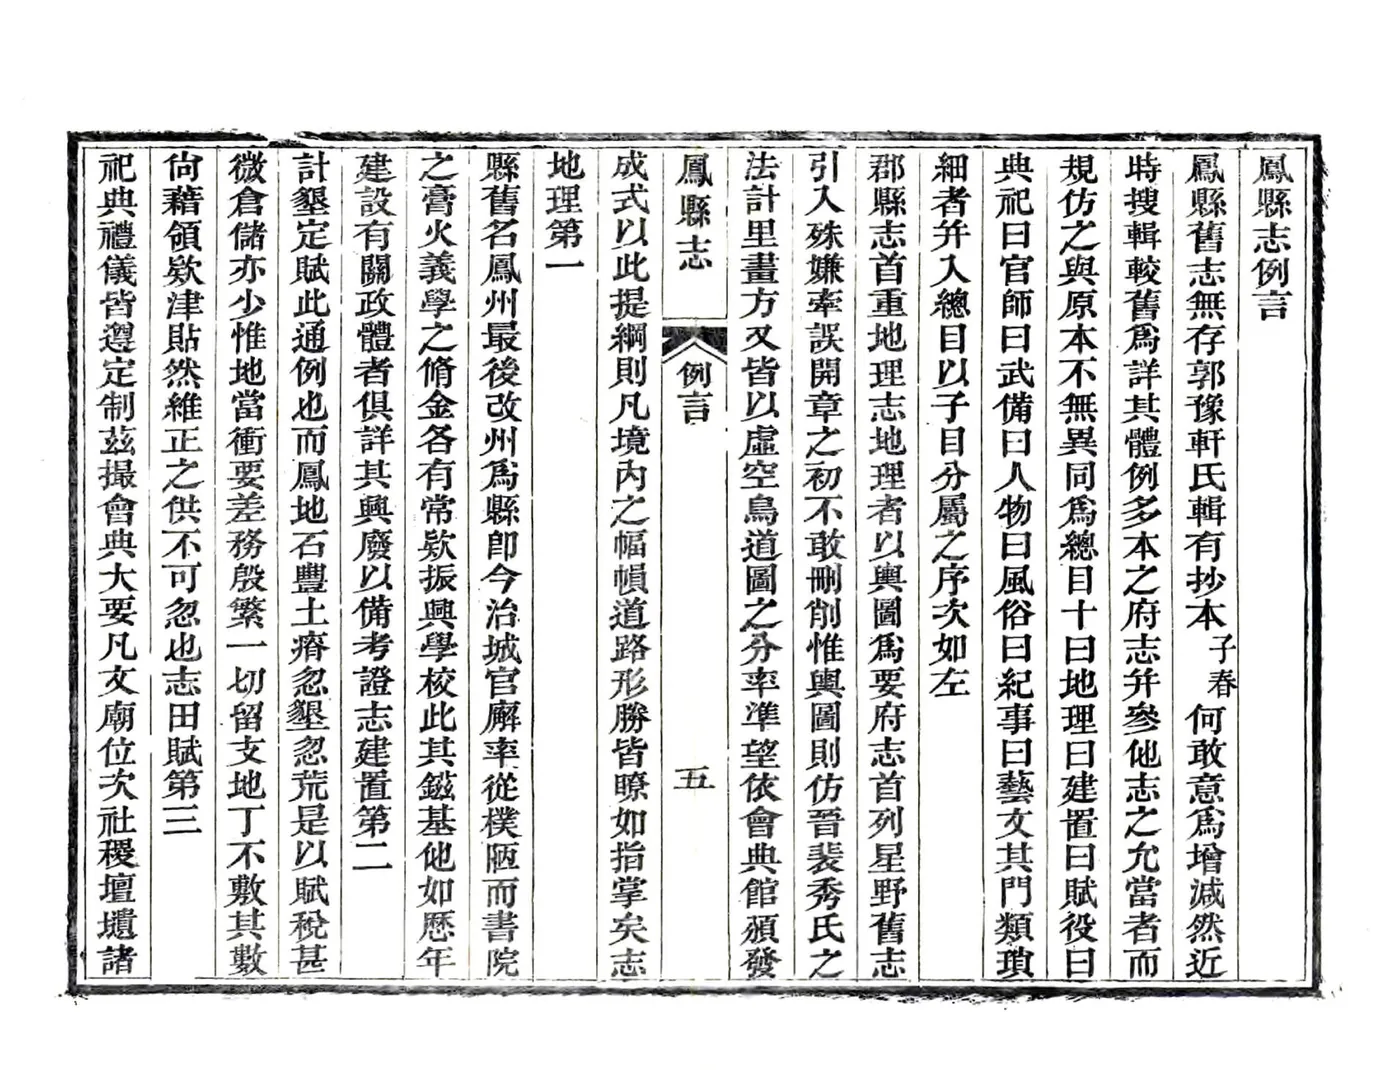 鳳縣志例言
鳳縣舊志無存郭豫軒氏輯有抄本子春何敢意爲增減然近
時搜輯較舊爲詳其體例多本之府志幷參他志之允當者而
規仿之與原本不無異同爲總目十曰地理曰建置曰賦役曰
典祀曰官師曰武備曰人物曰風俗曰紀事曰藝文其門類瑣
細者幷入總目以子目分屬之序次如左
郡縣志首重地理志地理者以輿圖爲要府志首列星野舊志
引入殊嫌牽誤開章之初不敢刪削惟輿圖則仿晉裴秀氏之
法計里畫方又皆以虛空鳥道圖之分率準望依會典館頒發
鳳縣志
例言
五
成式以此提綱則凡境內之幅幀道路形勝皆瞭如指掌矣志
地理第一
縣舊名鳳州最後改州爲縣卽今治城官廨率從樸陋而書院
之膏火義學之脩金各有常欵振興學校此其鎡基他如歷年
建設有關政體者俱詳其興廢以備考證志建置第二
計墾定賦此通例也而鳳地石豐土瘠忽墾忽荒是以賦稅甚
微倉儲亦少惟地當衝要差務殷繁一切留支地丁不敷其數
尙藉領欵津貼然維正之供不可忽也志田賦第三
祀典禮儀皆遵定制茲撮會典大要凡文廟位次社稷壇壝諸